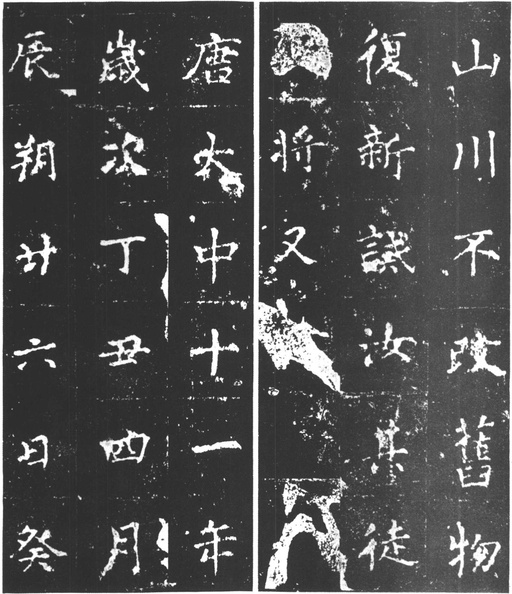 山川不改舊物
復新汝其徒
將又
唐大中十一年
歲次丁丑四月
辰朔廿六日癸